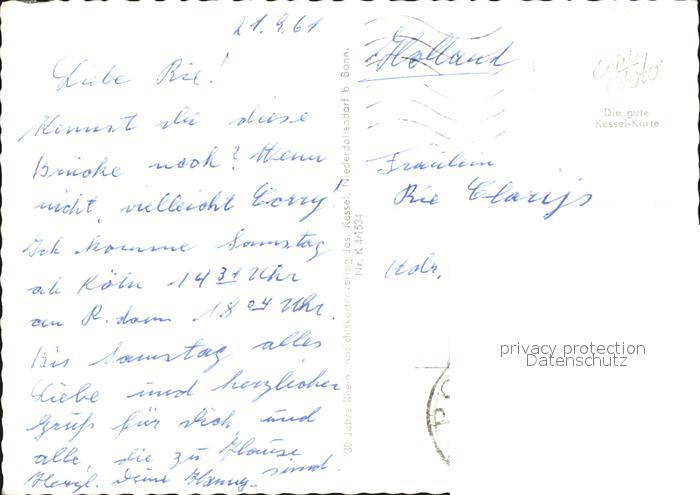 21.9.61
Liebe Rie!
Kennst du diese
Brücke noch? Wenn
nicht, vielleicht Corry!
Ich komme Samstag
ab Köln 14 31 Uhr
an R.dam 18 04 Uhr.
Bis Samstag alles
Liebe und herzlichen
Gruß für Dich und
alle, die zu Hause
sind.
Herzl. Deine
30 Jahre Rhein. Ansichtskartenverlag Jos. Kessel, Niederdollendorf b. Bonn.
Nr. K 4/1534
Holland
Echt Foto
Die gute
Kessel-Karte
Fräulein
Rie Clarijs
privacy protection
Datenschutz